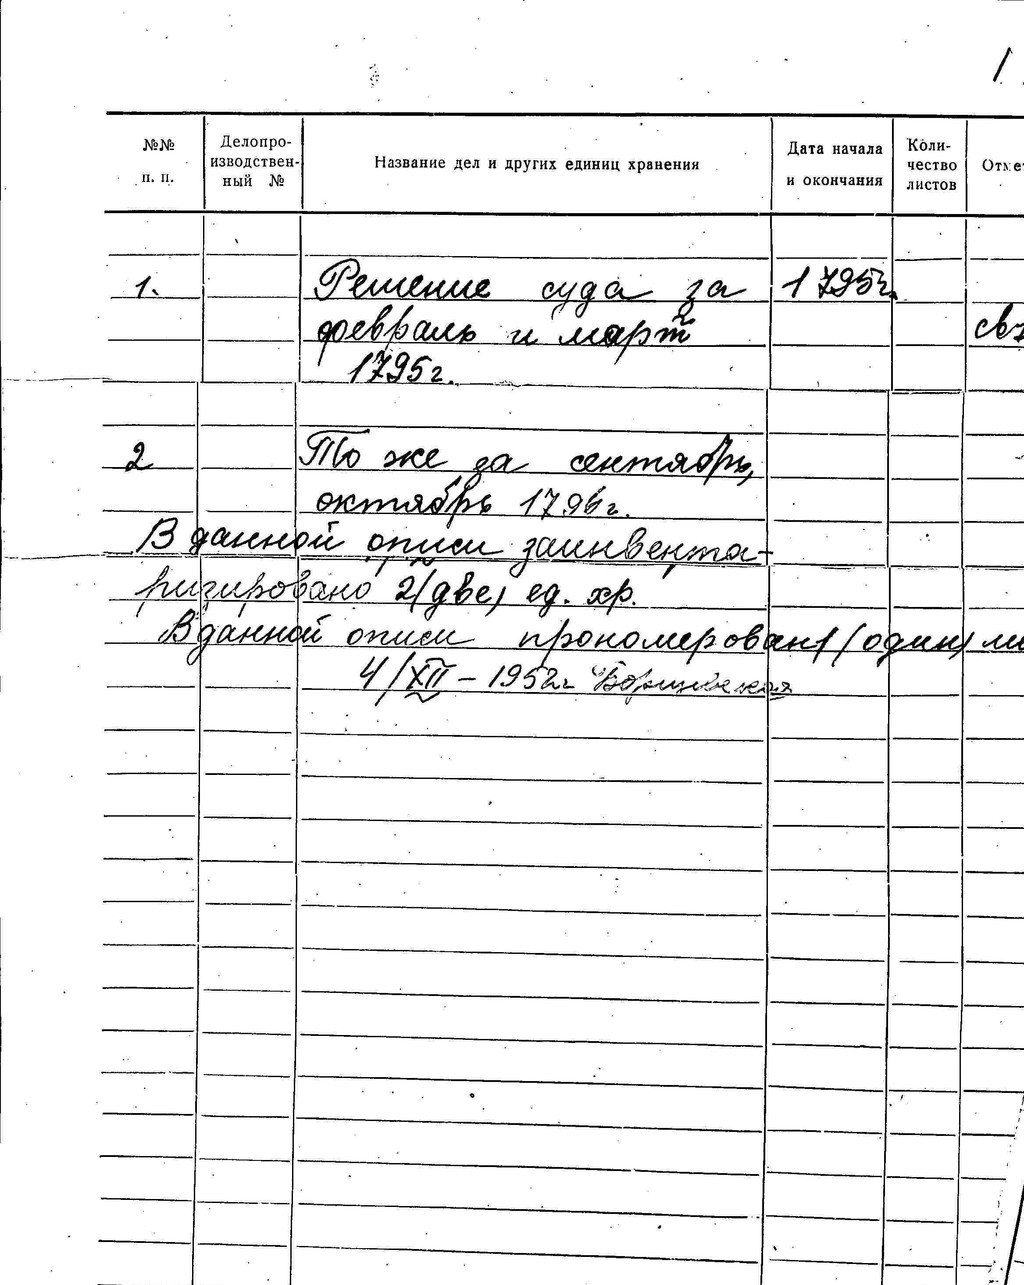 1
№№ п. п.
Делопро-
изводствен-
ный №
Название дел и других единиц хранения
Дата начала
и окончания
Коли-
чество
листов
Отме
1. Решение суда за 1795г.
февраль и март
1795г.
2 То же за сентябрь,
октябрь 1796г.
В данной описи заинвента-
ризировано 2(две) ед. хр.
В данной описи прономерован 1 (один) ли
4/XII – 1952г.